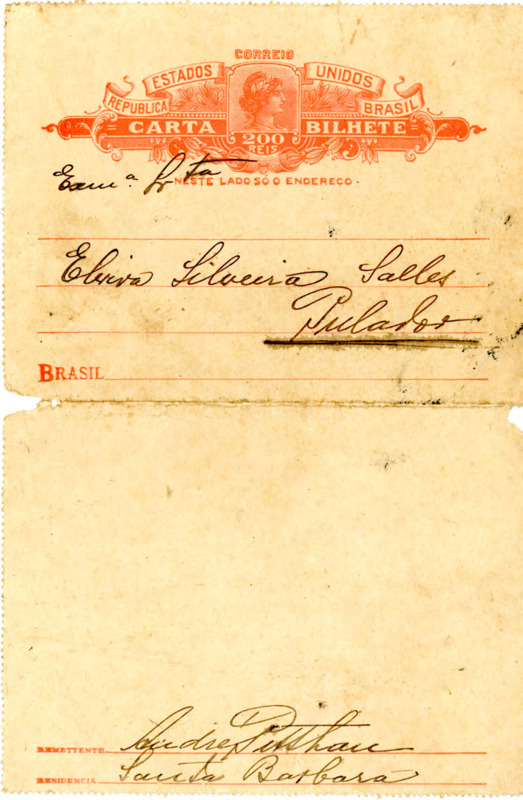 CORREIO
ESTADOS UNIDOS
REPUBLICA BRASIL
CARTA 200 REIS BILHETE
NESTE LADO SÓ O ENDEREÇO.
Exmª. Srta
Elvira Silveira Salles
Pulador
BRASIL
REMETTENTE Andre Pitthan
RESIDENCIA Santa Barbara